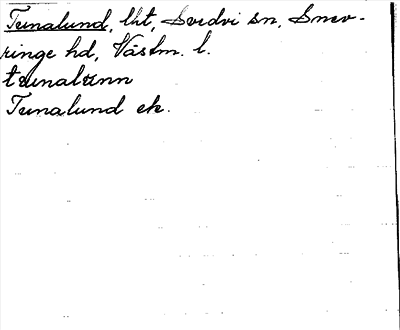 Tunalund, lht, Svedvi sn, Snev-
ringe hd, Västm. l.
tʉunalʉnn
Tunalund ek.